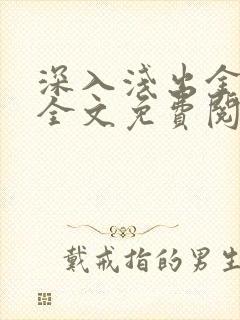 深入浅出全
全文免費閱
戴戒指的男生